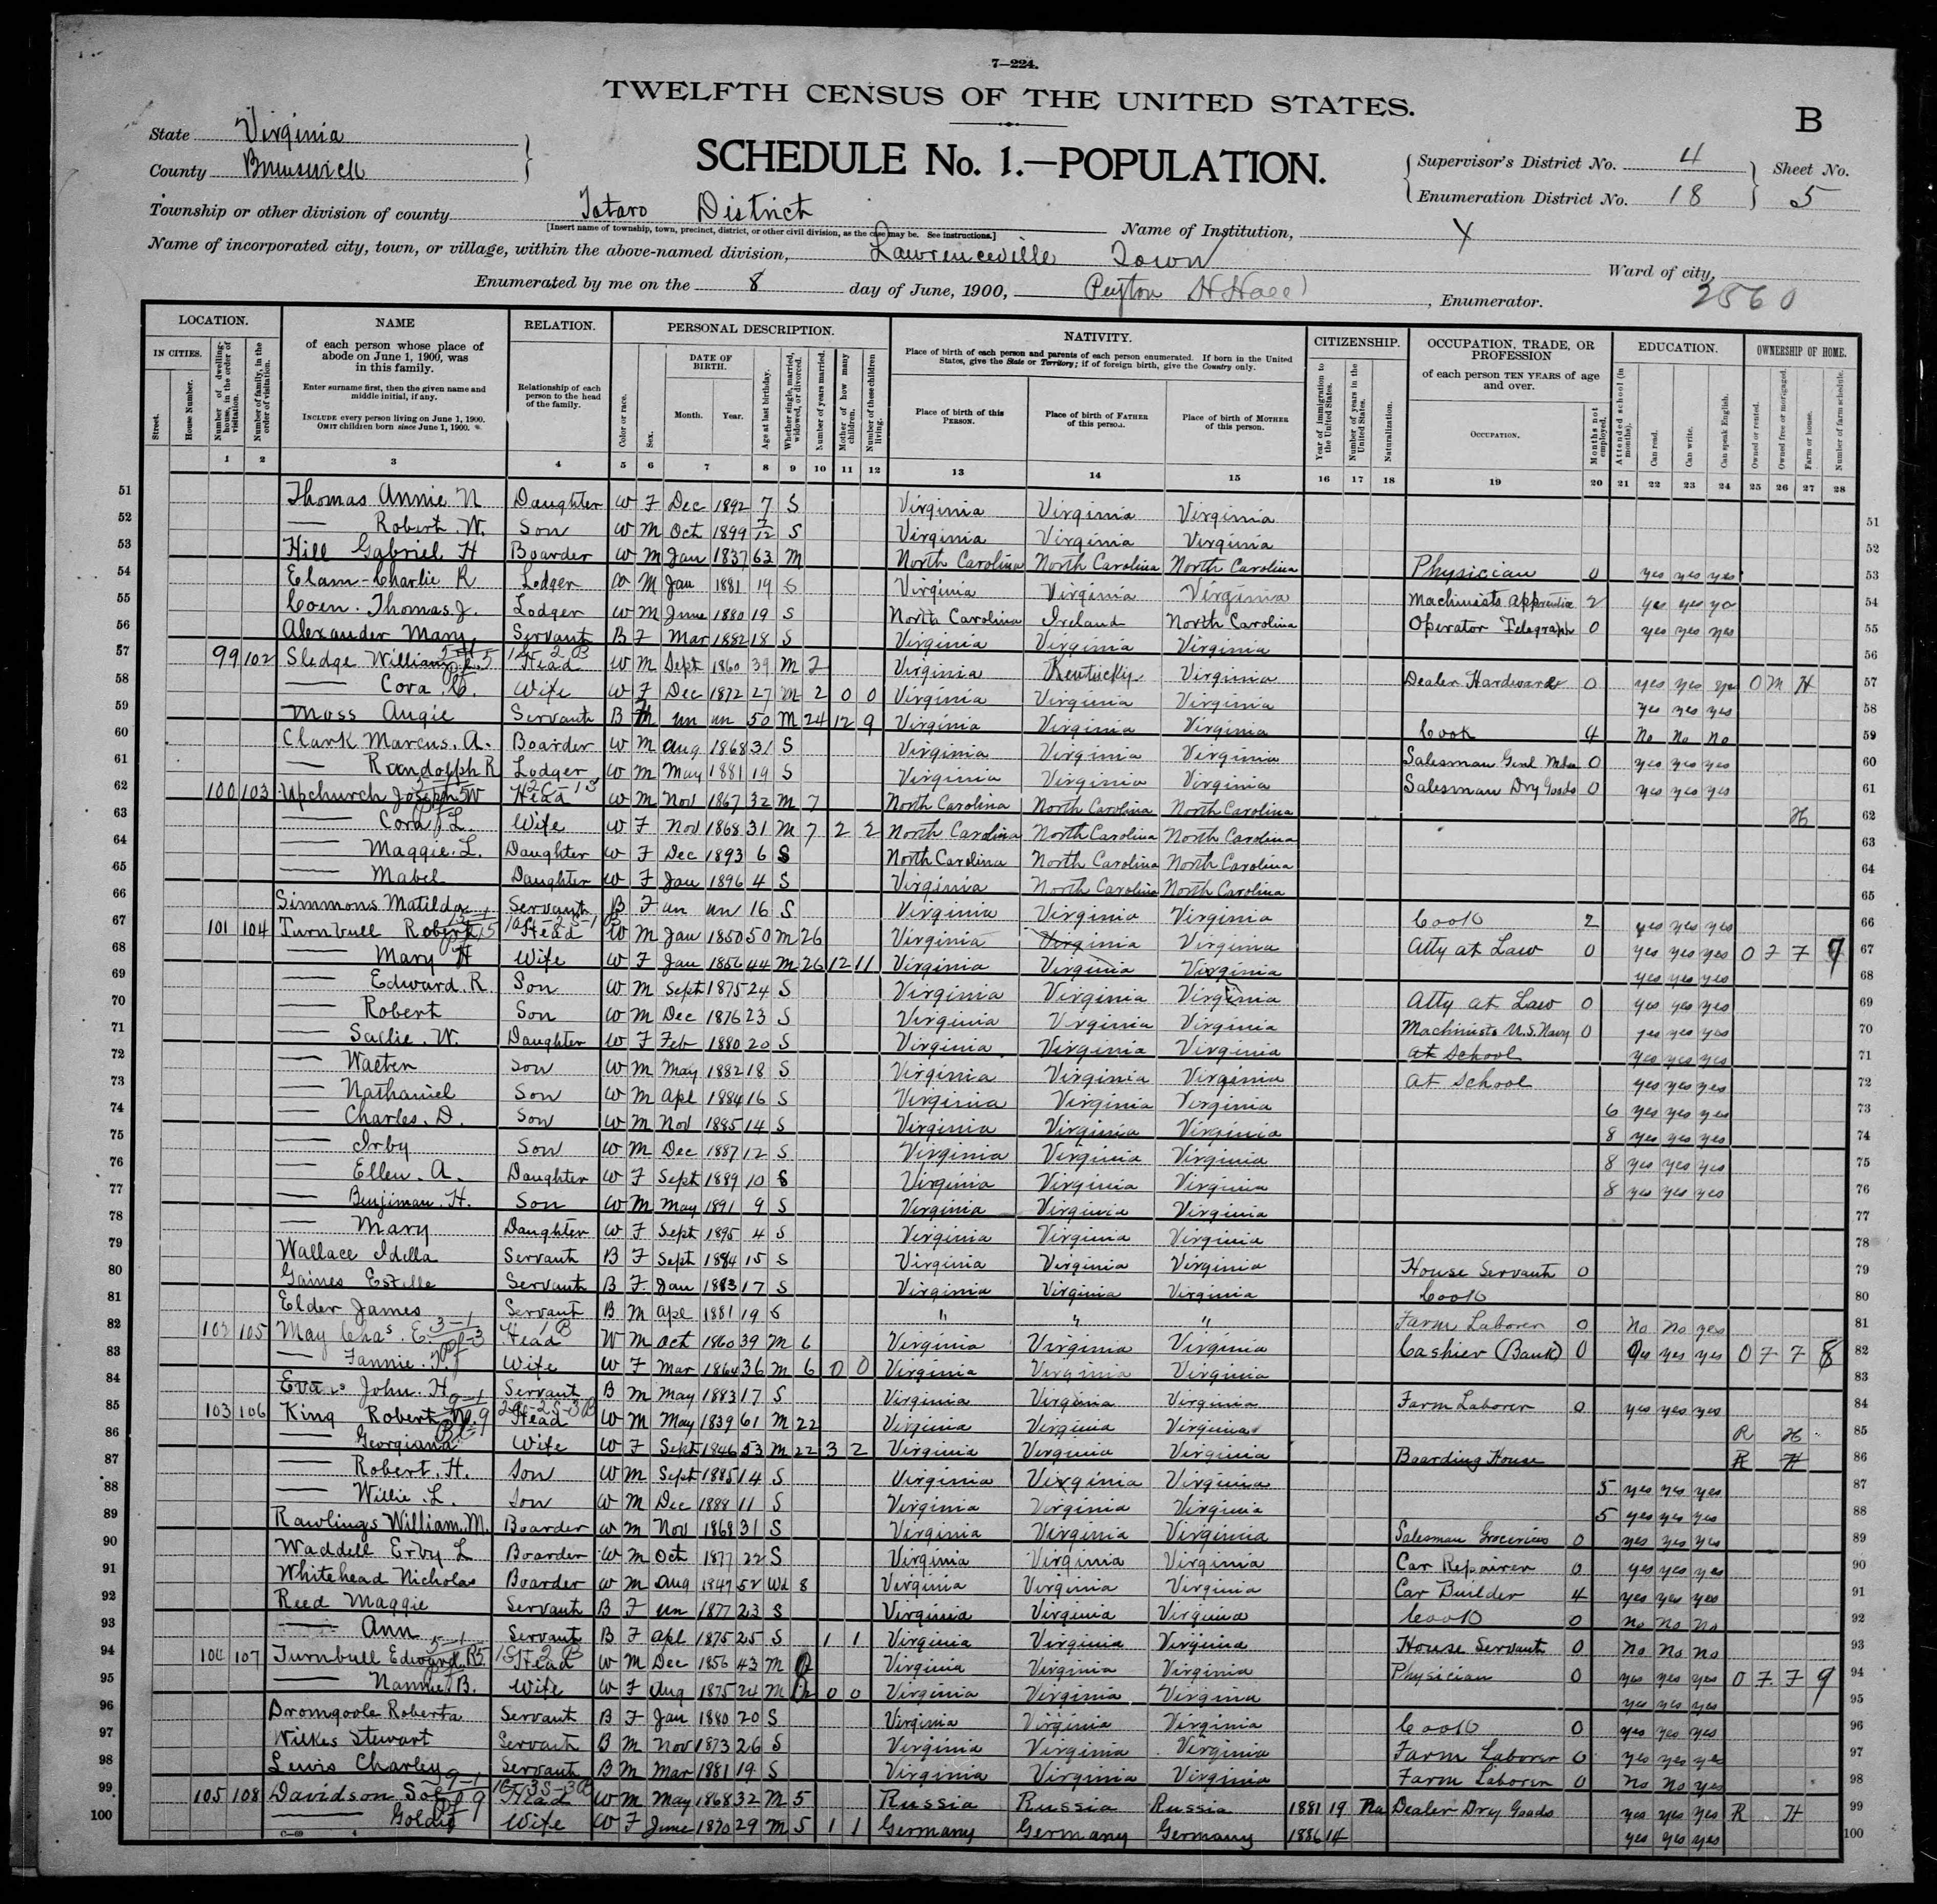 7—224.
TWELFTH CENSUS OF THE UNITED STATES.
B
State Virginia
County Brunswick
SCHEDULE No. 1.—POPULATION.
Supervisor's District No. 4
Enumeration District No. 18
Sheet No. 5
Township or other division of county Totaro District
[Insert name of township, town, precinct, district, or other civil division, as the case may be. See instructions.]
Name of Institution, X
Name of incorporated city, town, or village, within the above-named division, Lawrenceville Town
Ward of city,
Enumerated by me on the 8 day of June, 1900, Peyton H Hall, Enumerator.
2560
LOCATION. NAME RELATION. PERSONAL DESCRIPTION. NATIVITY. CITIZENSHIP. OCCUPATION, TRADE, OR PROFESSION EDUCATION. OWNERSHIP OF HOME.
IN CITIES. Street. House Number. Number of dwelling-house, in the order of visitation. Number of family, in the order of visitation.
of each person whose place of abode on June 1, 1900, was in this family.
Enter surname first, then the given name and middle initial, if any.
INCLUDE every person living on June 1, 1900. OMIT children born since June 1, 1900.
Relationship of each person to the head of the family.
Color or race. Sex. DATE OF BIRTH. Month. Year. Age at last birthday. Whether single, married, widowed, or divorced. Number of years married. Mother of how many children. Number of these children living.
Place of birth of each person and parents of each person enumerated. If born in the United States, give the State or Territory; if of foreign birth, give the Country only.
Place of birth of this PERSON. Place of birth of FATHER of this person. Place of birth of MOTHER of this person.
Year of immigration to the United States. Number of years in the United States. Naturalization.
of each person TEN YEARS of age and over.
OCCUPATION. Months not employed.
Attended school (in months). Can read. Can write. Can speak English.
Owned or rented. Owned free or mortgaged. Farm or house. Number of farm schedule.
1 2 3 4 5 6 7 8 9 10 11 12 13 14 15 16 17 18 19 20 21 22 23 24 25 26 27 28
51 Thomas Annie N Daughter W F Dec 1892 7 S Virginia Virginia Virginia 51
52 — Robert W. Son W M Oct 1899 7/12 S Virginia Virginia Virginia 52
53 Hill Gabriel H Boarder W M Jan 1837 63 M North Carolina North Carolina North Carolina Physician 0 yes yes yes 53
54 Elam Charlie R Lodger W M Jan 1881 19 S Virginia Virginia Virginia Machinists Apprentice 2 yes yes yes 54
55 Coen. Thomas J. Lodger W M June 1880 19 S North Carolina Ireland North Carolina Operator Telegraph 0 yes yes yes 55
56 Alexander Mary Servant B F Mar 1882 18 S Virginia Virginia Virginia 56
57 99 102 Sledge William Head W M Sept 1860 39 M 2 Virginia Kentucky Virginia Dealer Hardware 0 yes yes yes O M H 57
58 — Cora C. Wife W F Dec 1872 27 M 2 0 0 Virginia Virginia Virginia yes yes yes 58
59 Moss Angie Servant B un un 50 M 24 12 9 Virginia Virginia Virginia Cook 4 No No No 59
60 Clark Marcus. A. Boarder W M Aug 1868 31 S Virginia Virginia Virginia Salesman Genl Mdse 0 yes yes yes 60
61 — Randolph R Lodger W M May 1881 19 S Virginia Virginia Virginia Salesman Dry Goods 0 yes yes yes 61
62 100 103 Upchurch Joseph W Head W M Nov 1867 32 M 7 North Carolina North Carolina North Carolina H 62
63 — Cora L. Wife W F Nov 1868 31 M 7 2 2 North Carolina North Carolina North Carolina 63
64 — Maggie. L. Daughter W F Dec 1893 6 S North Carolina North Carolina North Carolina 64
65 — Mabel Daughter W F Jan 1896 4 S Virginia North Carolina North Carolina 65
66 Simmons Matilda Servant B F un un 16 S Virginia Virginia Virginia Cook 2 yes yes yes 66
67 101 104 Turnbull Robert Head W M Jan 1850 50 M 26 Virginia Virginia Virginia Atty at Law 0 yes yes yes O F F 7 67
68 — Mary H Wife W F Jan 1856 44 M 26 12 11 Virginia Virginia Virginia yes yes yes 68
69 — Edward. R. Son W M Sept 1875 24 S Virginia Virginia Virginia Atty at Law 0 yes yes yes 69
70 — Robert Son W M Dec 1876 23 S Virginia Virginia Virginia Machinists U.S. Navy 0 yes yes yes 70
71 — Sallie. W. Daughter W F Feb 1880 20 S Virginia Virginia Virginia At School yes yes yes 71
72 — Walter Son W M May 1882 18 S Virginia Virginia Virginia At School yes yes yes 72
73 — Nathaniel Son W M Apl 1884 16 S Virginia Virginia Virginia 6 yes yes yes 73
74 — Charles. D. Son W M Nov 1885 14 S Virginia Virginia Virginia 8 yes yes yes 74
75 — Irby Son W M Dec 1887 12 S Virginia Virginia Virginia 8 yes yes yes 75
76 — Ellen. A. Daughter W F Sept 1889 10 S Virginia Virginia Virginia 8 yes yes yes 76
77 — Benjiman. H. Son W M May 1891 9 S Virginia Virginia Virginia 77
78 — Mary Daughter W F Sept 1895 4 S Virginia Virginia Virginia 78
79 Wallace Idella Servant B F Sept 1884 15 S Virginia Virginia Virginia House Servant 0 79
80 Gaines Estelle Servant B F Jan 1883 17 S Virginia Virginia Virginia Cook 80
81 Elder James Servant B M Apl 1881 19 S " " " Farm Laborer 0 No No yes 81
82 102 105 May Chas. E. Head W M Oct 1860 39 M 6 Virginia Virginia Virginia Cashier (Bank) 0 yes yes yes O F F 8 82
83 — Fannie. Wife W F Mar 1864 36 M 6 0 0 Virginia Virginia Virginia 83
84 Evans John. H Servant B M May 1883 17 S Virginia Virginia Virginia Farm Laborer 0 yes yes yes 84
85 103 106 King Robert Head W M May 1839 61 M 22 Virginia Virginia Virginia R H 85
86 — Georgiana Wife W F Sept 1846 53 M 22 3 2 Virginia Virginia Virginia Boarding House R H 86
87 — Robert. H. Son W M Sept 1885 14 S Virginia Virginia Virginia 5 yes yes yes 87
88 — Willie. L. Son W M Dec 1888 11 S Virginia Virginia Virginia 5 yes yes yes 88
89 Rawlings William. M. Boarder W M Nov 1868 31 S Virginia Virginia Virginia Salesman Groceries 0 yes yes yes 89
90 Waddell Erby L Boarder W M Oct 1877 22 S Virginia Virginia Virginia Car Repairer 0 yes yes yes 90
91 Whitehead Nicholas Boarder W M Aug 1847 52 Wd 8 Virginia Virginia Virginia Car Builder 4 yes yes yes 91
92 Reed Maggie Servant B F un 1877 23 S Virginia Virginia Virginia Cook 0 No No No 92
93 — Ann Servant B F Apl 1875 25 S 1 1 Virginia Virginia Virginia House Servant 0 No No No 93
94 104 107 Turnbull Edward R Head W M Dec 1856 43 M 2 Virginia Virginia Virginia Physician 0 yes yes yes O F F 9 94
95 — Nannie B. Wife W F Aug 1875 24 M 2 0 0 Virginia Virginia Virginia yes yes yes 95
96 Dromgoole Roberta Servant B F Jan 1880 20 S Virginia Virginia Virginia Cook 0 yes yes yes 96
97 Wilkes Stewart Servant B M Nov 1873 26 S Virginia Virginia Virginia Farm Laborer 0 yes yes yes 97
98 Lewis Charley Servant B M Mar 1881 19 S Virginia Virginia Virginia Farm Laborer 0 No No yes 98
99 105 108 Davidson Sol Head W M May 1868 32 M 5 Russia Russia Russia 1881 19 Na Dealer Dry Goods yes yes yes R H 99
100 — Goldie Wife W F June 1870 29 M 5 1 1 Germany Germany Germany 1886 14 yes yes yes 100